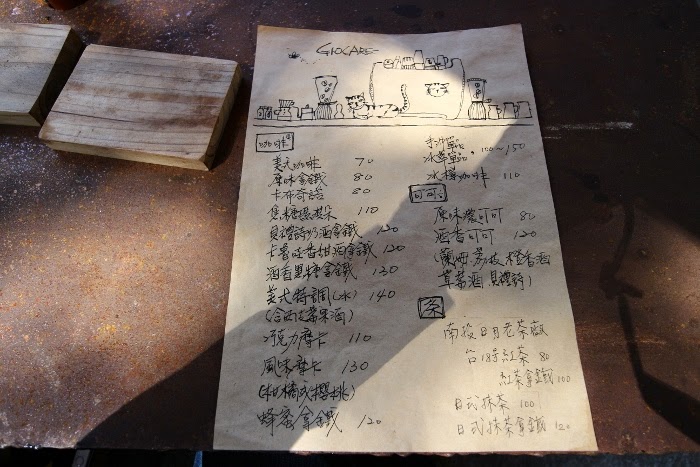 GIOCARE
咖啡
美式咖啡 70
原味拿鐵 80
卡布奇諾 80
焦糖瑪琪朵 110
貝禮詩奶酒拿鐵 120
卡魯哇香甜酒拿鐵 120
酒香黑糖拿鐵 130
美式特調(冰) 140
巧克力摩卡 110
風味摩卡 130
(柑橘或櫻桃)
蜂蜜拿鐵 120
手沖單品
冰單品 100~150
冰檸咖啡 110
可可
原味濃可可 80
酒香可可 120
(蘭姆 荔枝 橙香酒
草莓酒 貝禮詩)
茶
南投日月老茶廠
台18号紅茶 80
紅茶拿鐵 100
日式抹茶 100
日式抹茶拿鐵 120